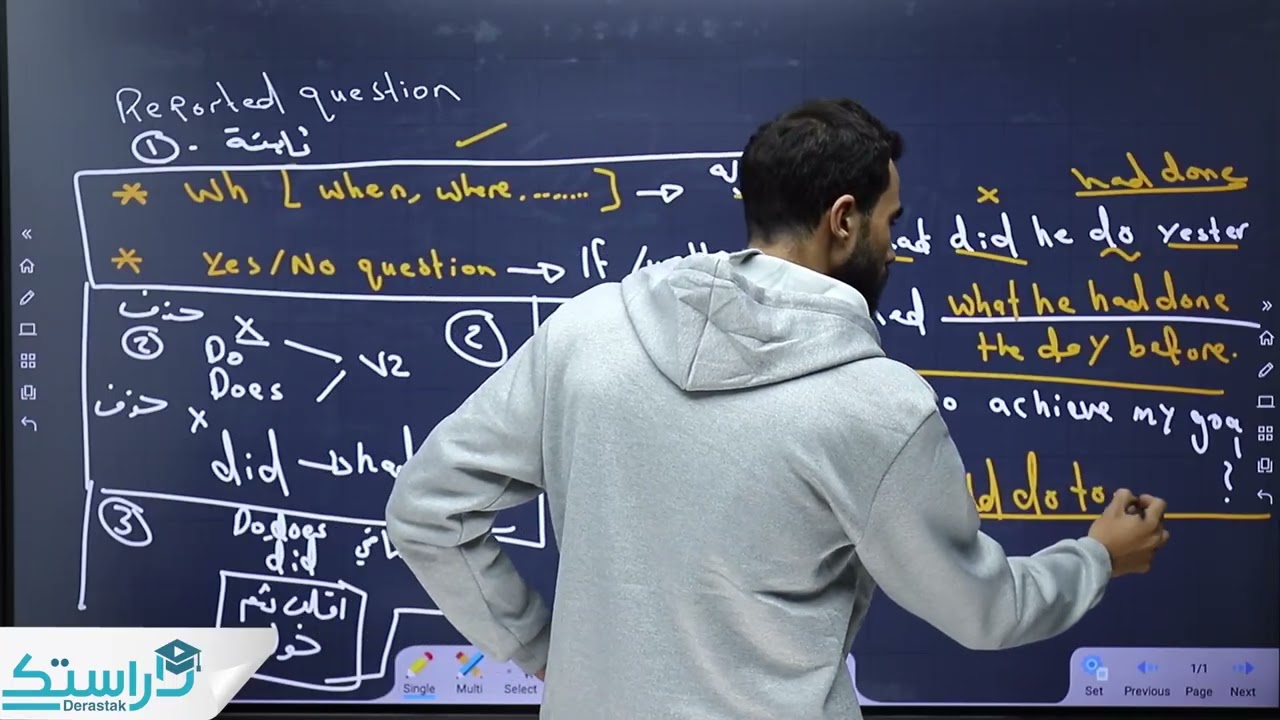 Reported question
① - ثابتة
* Wh [ when, where........ ] →
* Yes/No question → If /
حذف
② X Do
Does V2
حذف X
did → had
②
③ Do, does
did
اقلب ثم
حول
had done
x
did he do yester
what he had done
the day before.
achieve my goal
?
do to
Single Multi Select
Set Previous 1/1 Page Next
دراستك
Derastak